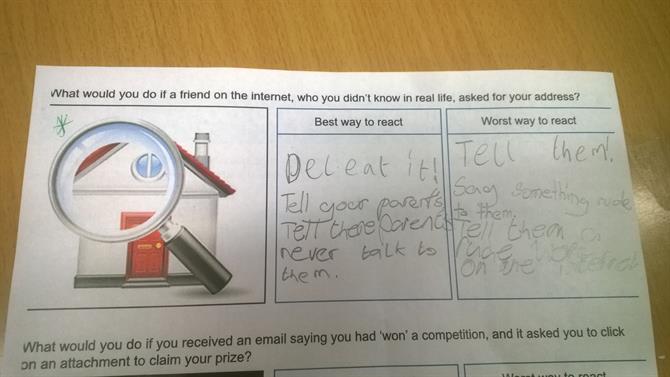 What would you do if a friend on the internet, who you didn't know in real life, asked for your address?
Best way to react
Deleat it!
Tell your parents
Tell there parents
never talk to
them.
Worst way to react
Tell them!
Say something rude
to them.
Tell them a
rude
on the internet
What would you do if you received an email saying you had 'won' a competition, and it asked you to click
on an attachment to claim your prize?
Worst way to react